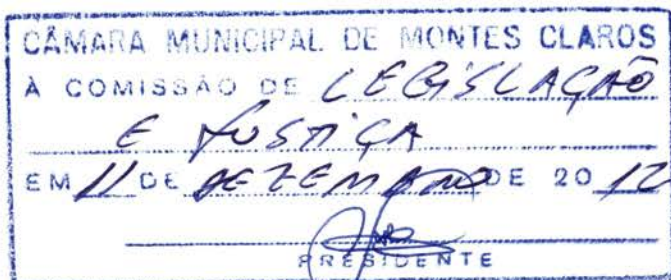 CÂMARA MUNICIPAL DE MONTES CLAROS
À COMISSÃO DE LEGISLAÇÃO
E JUSTIÇA
EM 11 DE DEZEMBRO DE 2012
PRESIDENTE